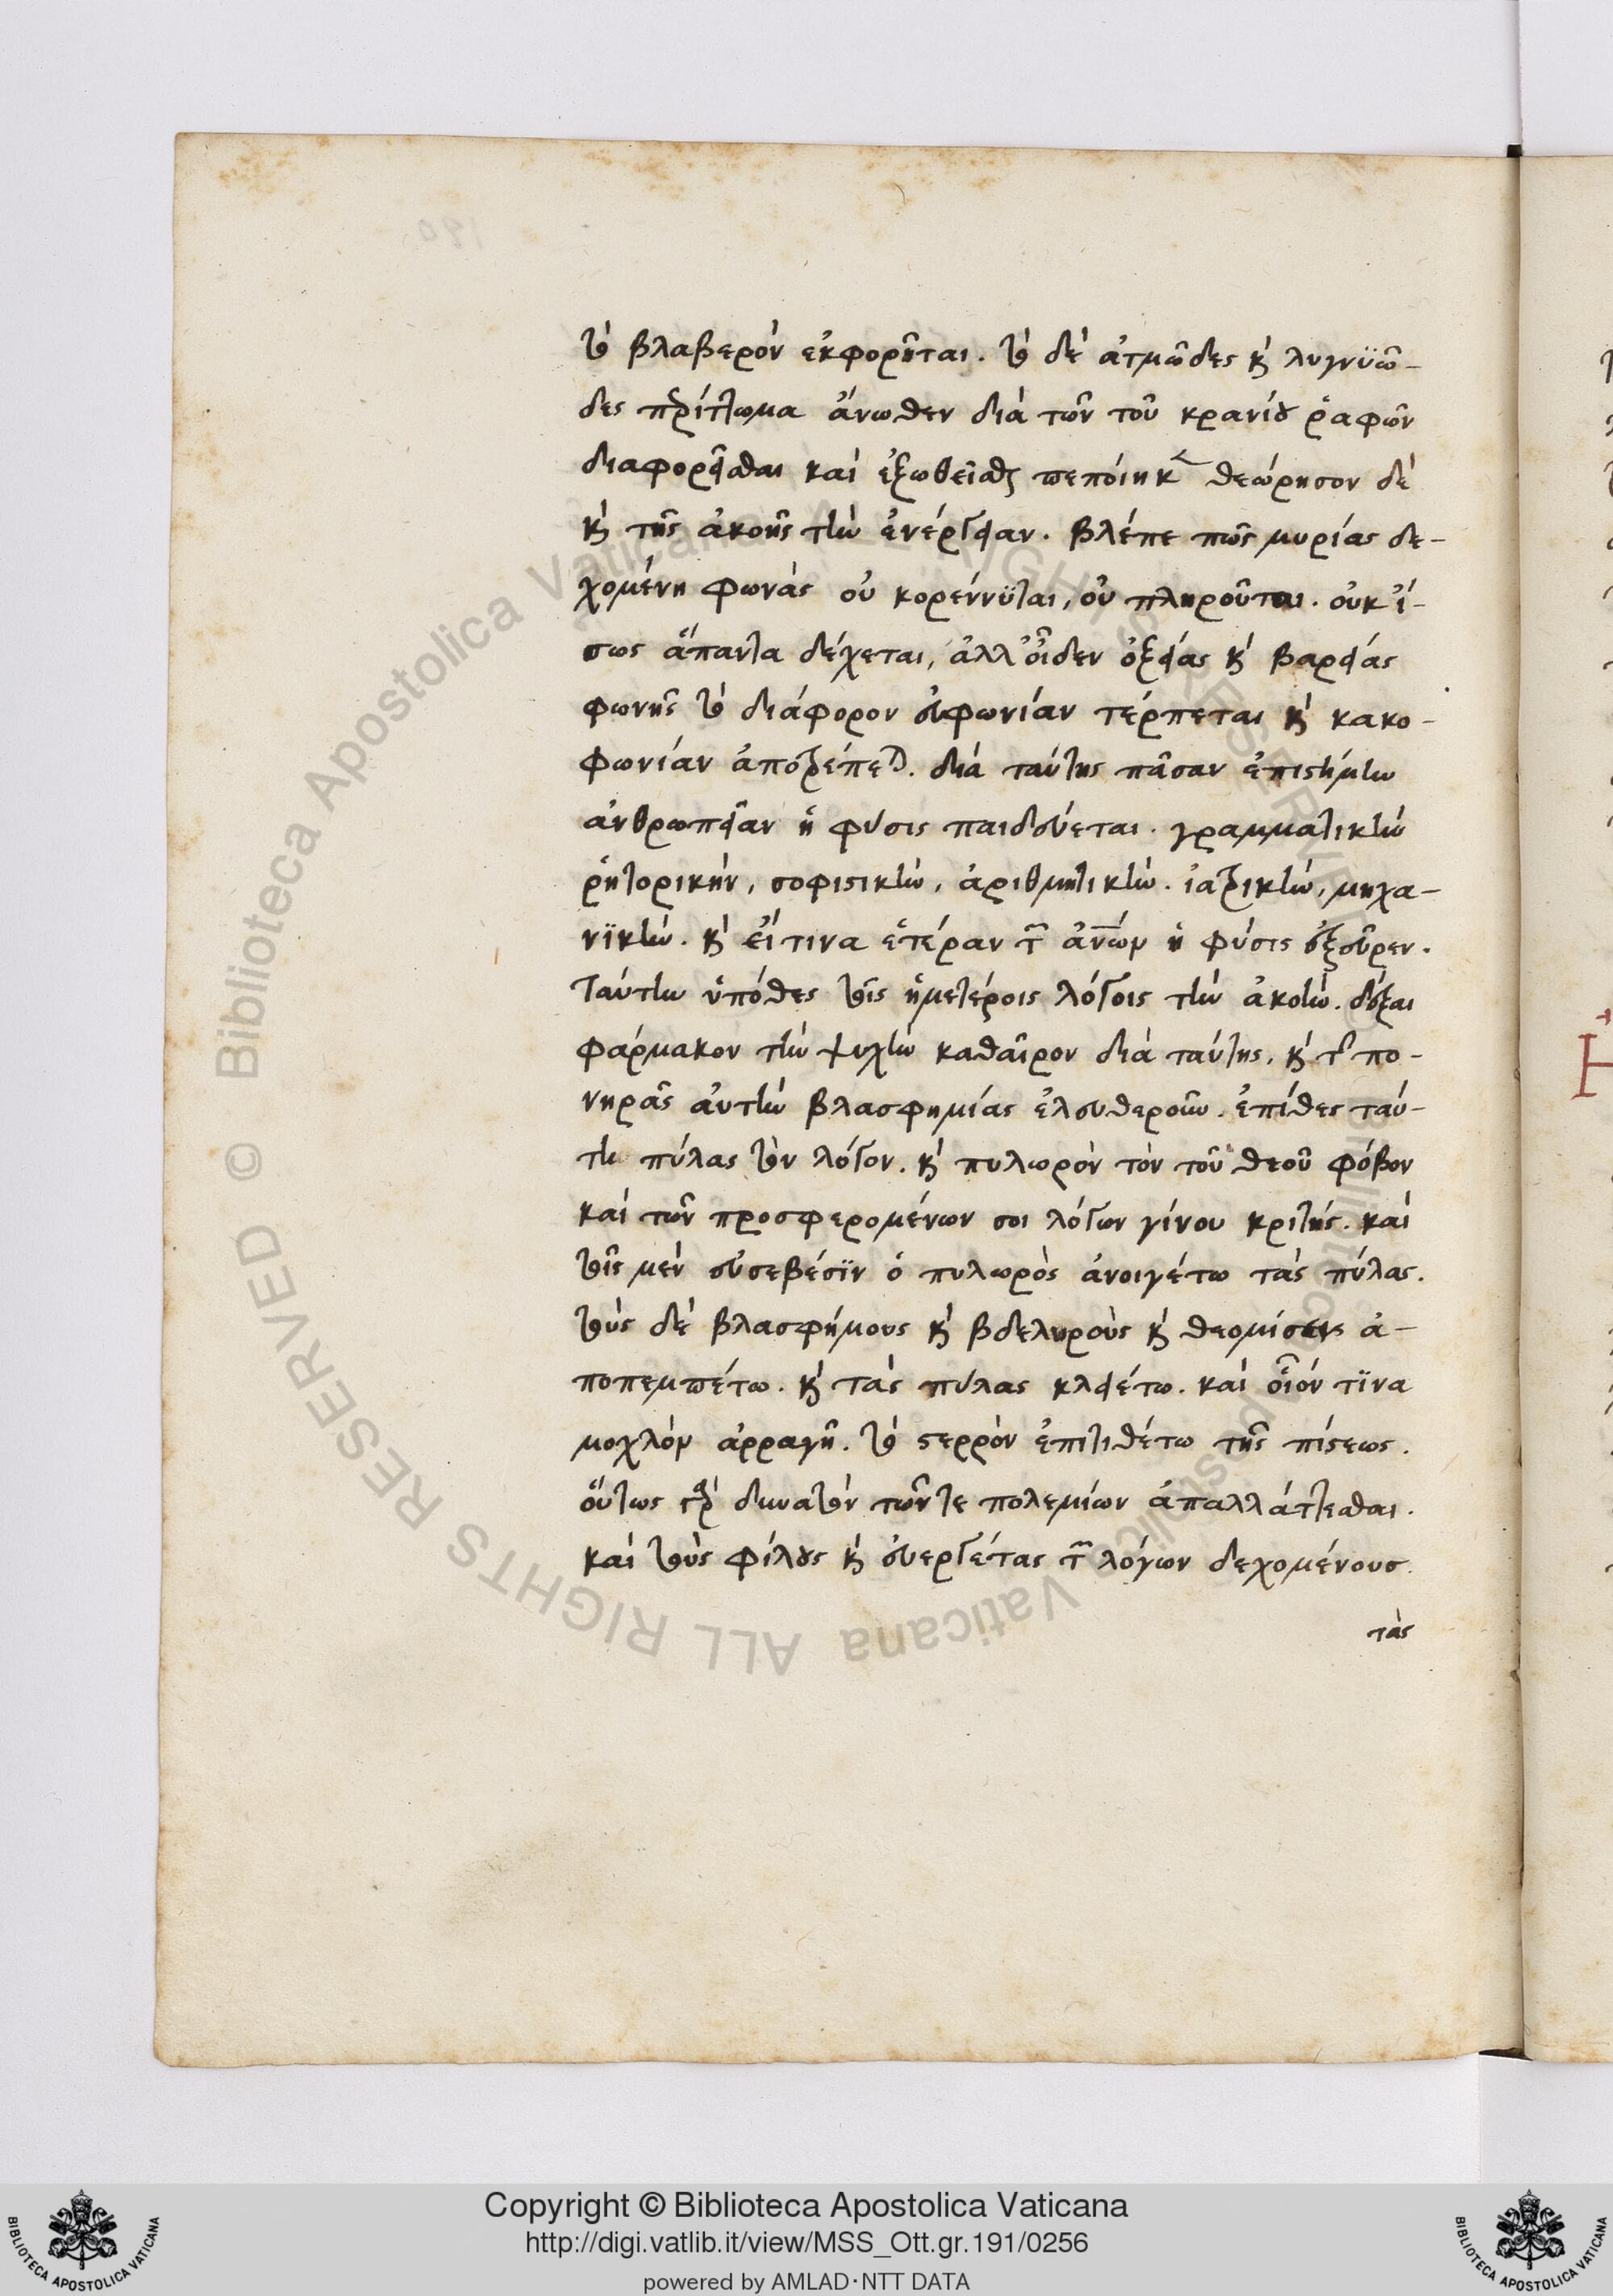 τὸ βλαβερὸν ἐκφορῆται. τὸ δὲ ἀτμῶδες κὴ λυγνϋῶ-
δες περίττωμα ἄνωθεν διὰ τῶν τοῦ κρανίου ῥαφῶν
διαφορεῖσθαι καὶ ἐξωθεῖσθαι πεποίηκε θεώρησον δὲ
καὶ τῆς ἀκοῆς τὴν ἐνέργειαν. βλέπε πῶς μυρίας δε-
χομένη φωνὰς οὐ κορέννϋται, οὐ πληροῦται. οὐκ ἴ-
σως ἅπαντα δέχεται, ἀλλ' οἶδεν ὀξείας καὶ βαρείας
φωνῆς τὸ διάφορον συμφωνίαν τέρπεται καὶ κακο-
φωνίαν ἀποτρέπεται. διὰ ταύτης πᾶσαν ἐπιστήμην
ἀνθρωπείαν ἡ φύσις παιδεύεται. γραμματικὴν
ῥητορικήν, σοφιστικὴν, ἀριθμητικὴν. ἰατρικὴν, μηχα-
νϊκὴν. καὶ εἴ τινα ἑτέραν τῶν ἀνῶν ἡ φύσις ἐξεῦρεν.
Ταύτην ὑπόθες τοῖς ἡμετέροις λόγοις τὴν ἀκοὴν. δέξαι
φάρμακον τὴν ψυχὴν καθαῖρον διὰ ταύτης, καὶ τῆς πο-
νηρᾶς αὐτὴν βλασφημίας ἐλευθεροῦν. ἐπίθες ταύ-
τη πύλας τὸν λόγον. καὶ πυλωρὸν τὸν τοῦ θεοῦ φόβον
καὶ τῶν προσφερομένων σοι λόγων γίνου κριτής. καὶ
τοῖς μὲν εὐσεβέσϊν ὁ πυλωρὸς ἀνοιγέτω τὰς πύλας.
τοὺς δὲ βλασφήμους καὶ βδελυροὺς καὶ θεομίσεις ἀ-
ποπεμπέτω. καὶ τὰς πύλας κλειέτω. καὶ οἷόν τϊνα
μοχλὸν ἀρραγῆ. τὸ στερρὸν ἐπιτιθέτω τῆς πίστεως.
οὕτως γὰρ δυνατὸν τῶν τε πολεμίων ἀπαλλάττεσθαι.
καὶ τοὺς φίλους καὶ εὐεργέτας τῶν λόγων δεχομένους
τὰς
Copyright © Biblioteca Apostolica Vaticana
http://digi.vatlib.it/view/MSS_Ott.gr.191/0256
powered by AMLAD·NTT DATA
BIBLIOTECA APOSTOLICA VATICANA
BIBLIOTECA APOSTOLICA VATICANA
© Biblioteca Apostolica Vaticana ALL RIGHTS RESERVED
© Biblioteca Apostolica Vaticana ALL RIGHTS RESERVED